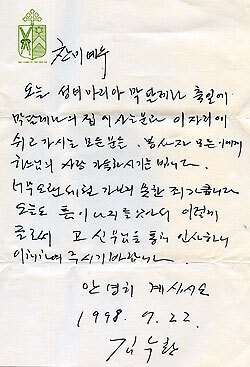 찬미예수
오늘 성녀 마리아 막달레나 축일에
막달레나의 집 이사는분과 이 자리에
쉬고 가시는 모든분들, 봉사자 모든이에게
하느님의 사랑 가득하시기를 빕니다.
가보지 못한 죄가 큽니다
오늘도 틈이 나지를 않아서 이렇게
글로써 고 신부님을 통해 인사하니
이해하여 주시기 바랍니다.
안녕히 계십시오
1998. 7. 22.
김수환